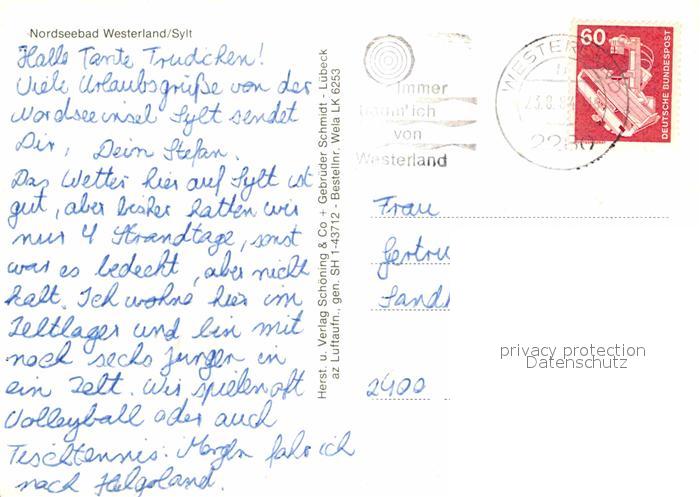 Nordseebad Westerland/Sylt
Hallo Tante Trudchen!
Viele Urlaubsgrüße von der
Nordseeinsel Sylt sendet
Dir, Dein Stefan.
Das Wetter hier auf Sylt ist
gut, aber bisher hatten wir
nur 4 Strandtage, sonst
war es bedeckt, aber nicht
kalt. Ich wohne hier im
Zeltlager und bin mit
noch sechs Jungen in
ein Zelt. Wir spielen oft
Volleyball oder auch
Tischtennis. Morgen fahr ich
nach Helgoland.
Herst. u. Verlag Schöning & Co + Gebrüder Schmidt - Lübeck
az Luftaufn., gen. SH 1-43712 - Bestellnr. Wela LK 6253
Immer
träum' ich
von
Westerland
WESTER
23.8.8
2280
60
DEUTSCHE BUNDESPOST
Frau
Gertru
Sand
2400
privacy protection
Datenschutz